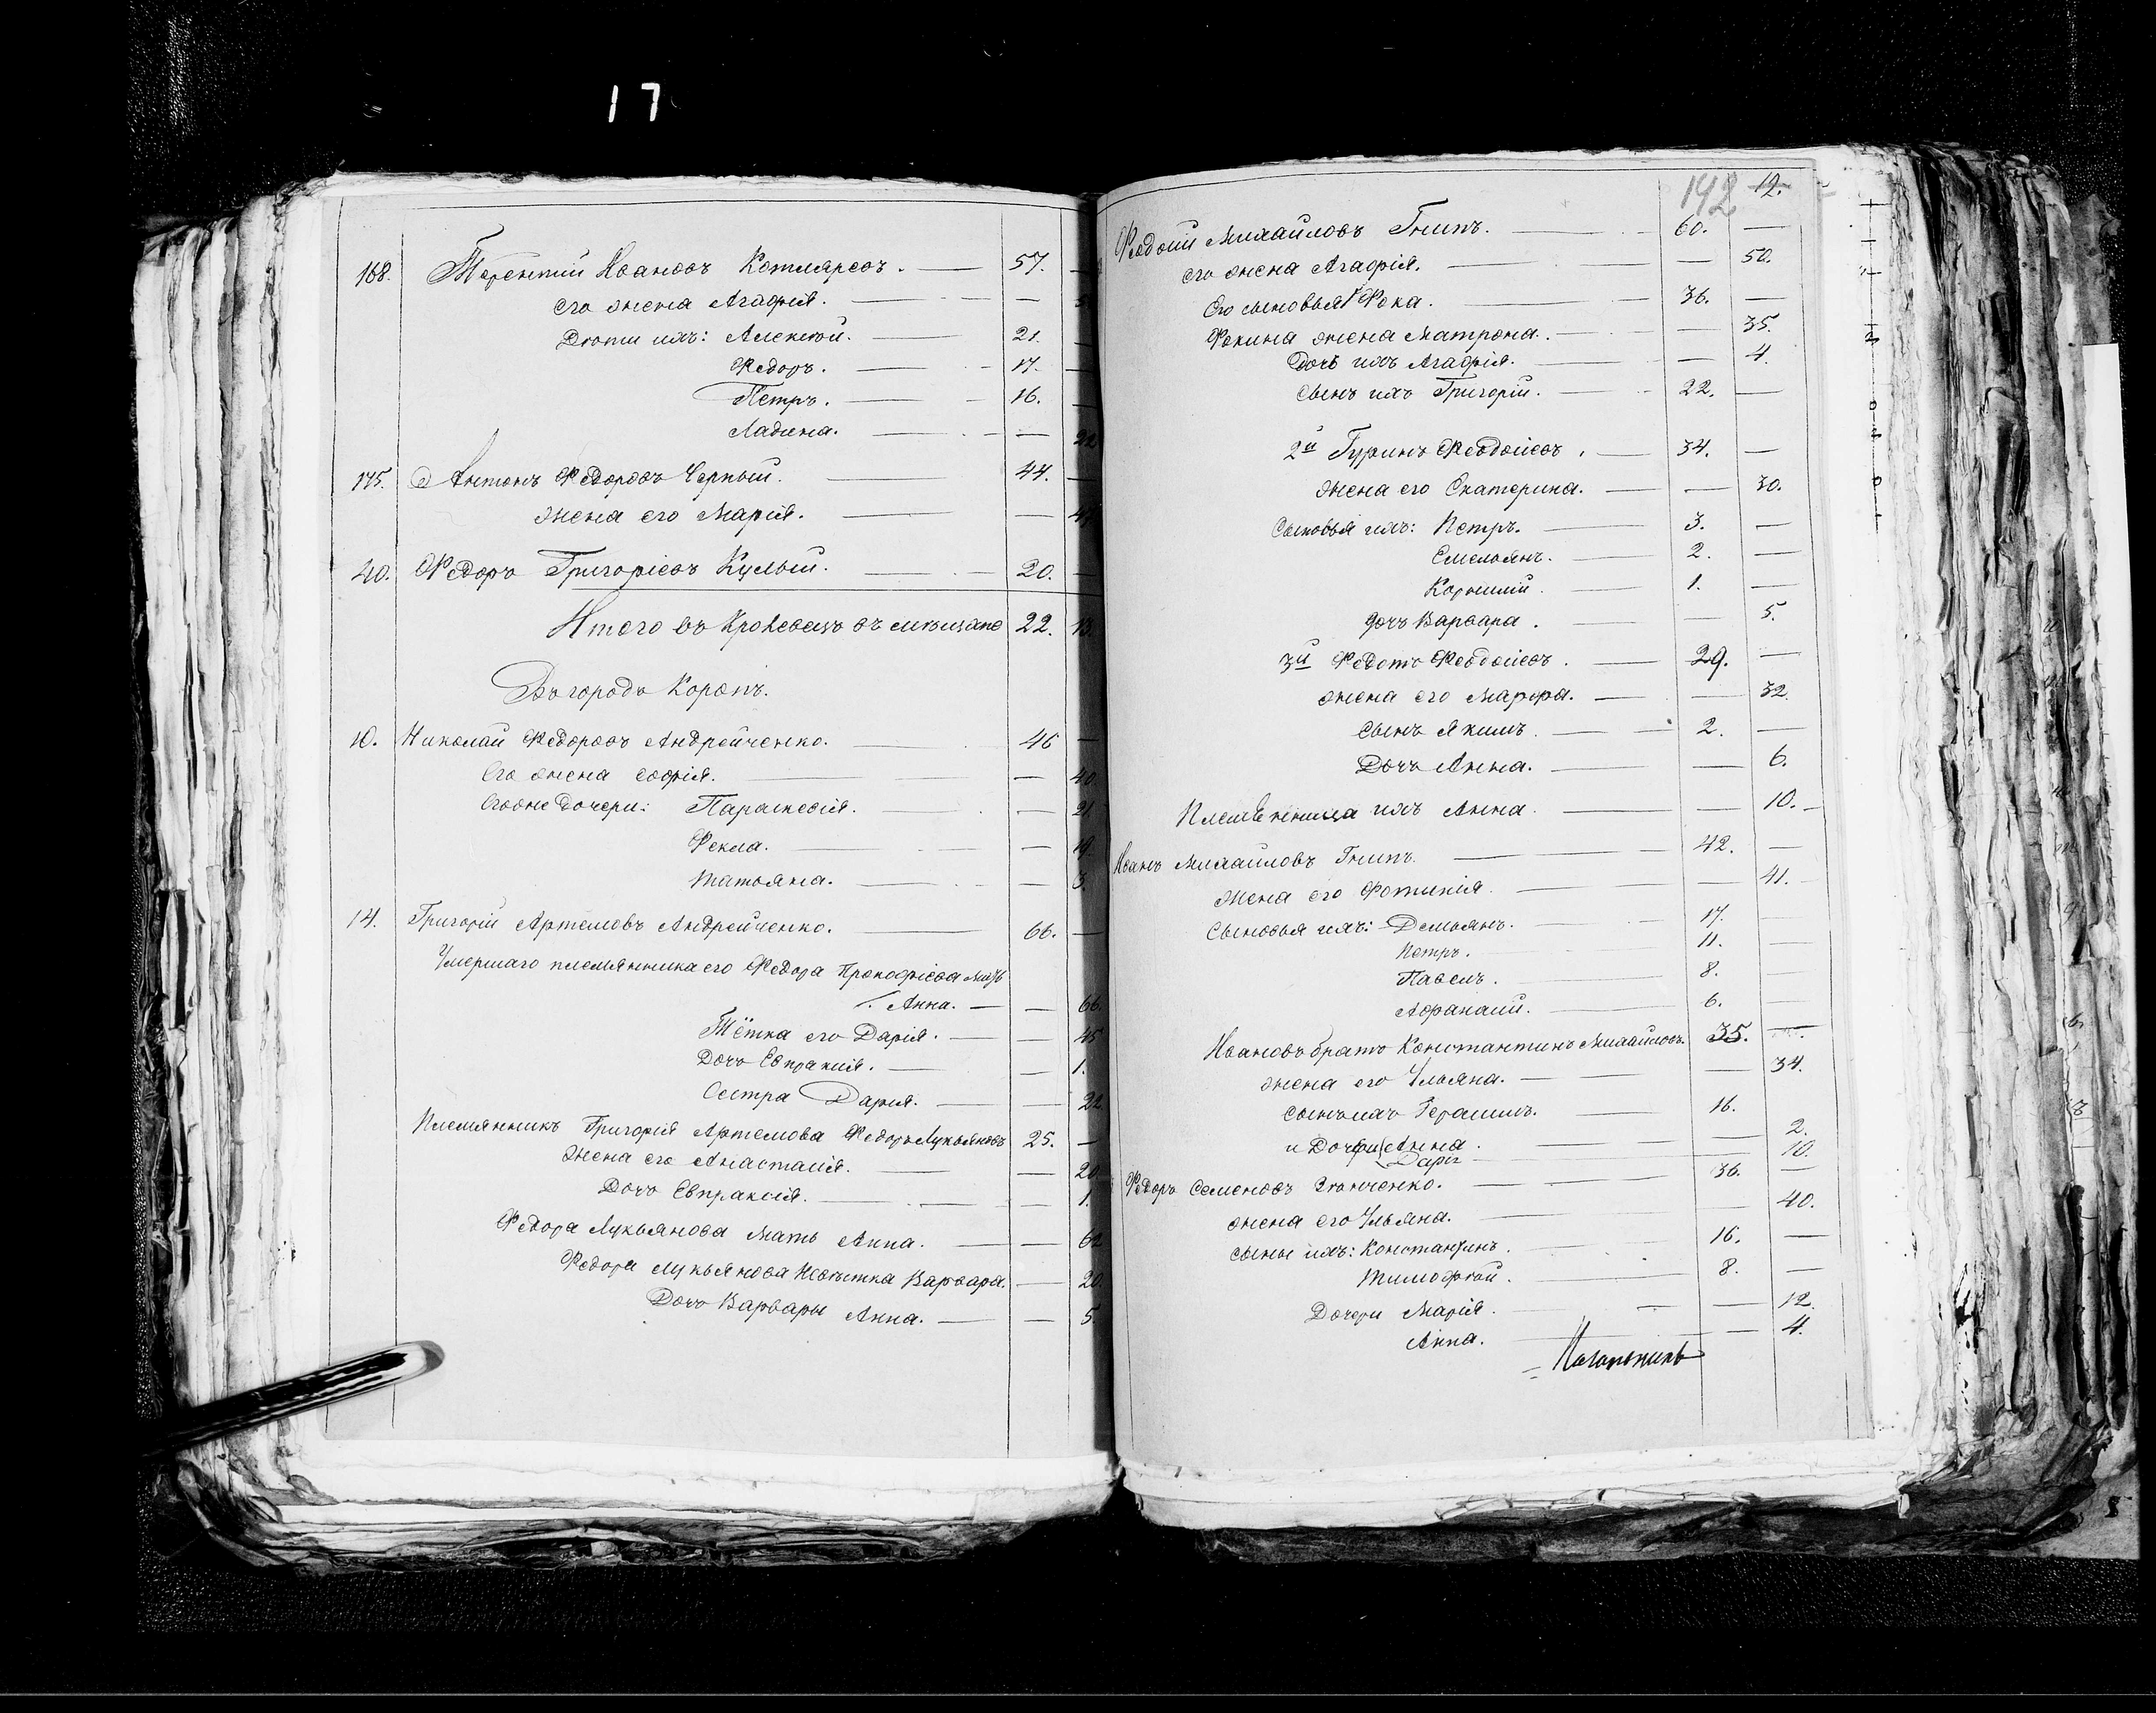 17
168. Терентий Ивановъ Котляревъ. — 57. —
его жена Агафія. — —
Дѣти ихъ: Алексѣй. — 21. —
Федоръ. — 17. —
Петръ. — 16. —
— — 22
175. Антонъ Федоровъ Черный. — 44. —
жена его Марія. — —
40. Федоръ Григоріевъ Куцый. — 20. —
Итого въ Кролевецъ въ мѣщане 22. 13.
Въ городъ Коропъ.
10. Николай Федоровъ Андрейченко. 46 —
Его жена Софія. — 40.
Его же дочери: Параскевія. — — 21.
Фекла. — — 19.
Татьяна. — — 3.
14. Григорій Артемовъ Андрейченко. — 66. —
Умершаго племянника его Федора Прокофіева мать
Анна. — — 66.
Тётка его Дарія. — — 45
Дочь Евпраксія. — — 1.
Сестра Дарія. — — 22
Племянникъ Григорія Артемова Федоръ Лукьяновъ 25. —
Жена его Анастасія. — — 20
Дочь Евпраксія. — — 1.
Федора Лукьянова мать Анна. — — 62
Федора Лукьянова Невѣстка Варвара. — 20.
Дочь Варвары Анна. — — 5.
192 12.
Феодосій Михайловъ Гнипъ. — 60. —
его жена Агафія. — — 50.
Его сыновья 1й Фока. — 36. —
Фокина жена Матрона. — — 35.
Дочь ихъ Агафія. — — 4.
Сынъ ихъ Григорій. — 22. —
2й Гуринъ Феодосіевъ. — 34. —
жена его Екатерина. — — 30.
Сыновья ихъ: Петръ. — 3. —
Емельянъ. — 2. —
Корнилій. — 1. —
дочь Варвара. — — 5.
3й Федотъ Феодосіевъ. — 29. —
жена его Марфа. — — 32.
Сынъ Якимъ. — 2. —
Дочь Анна. — — 6.
Племѣнница ихъ Анна. — — 10. —
Иванъ Михайловъ Гнипъ. — 42. —
Жена его Фотинія. — — 41.
Сыновья ихъ: Демьянъ. — 17. —
Петръ. — 11. —
Павелъ. — 8. —
Афанасій. — 6. —
Ивановъ братъ Константинъ Михайловъ. 35. —
жена его Ульяна. — — 34.
сынъ ихъ Герасимъ. — 16.
и Дочери Анна. — — 2.
Дарія — — 10.
Федоръ Семеновъ — 36. —
жена его Ульяна. — — 40.
сыны ихъ: Константинъ. — 16. —
Тимофѣй. — 8. —
Дочери Марія. — — 12.
Анна. — — 4.